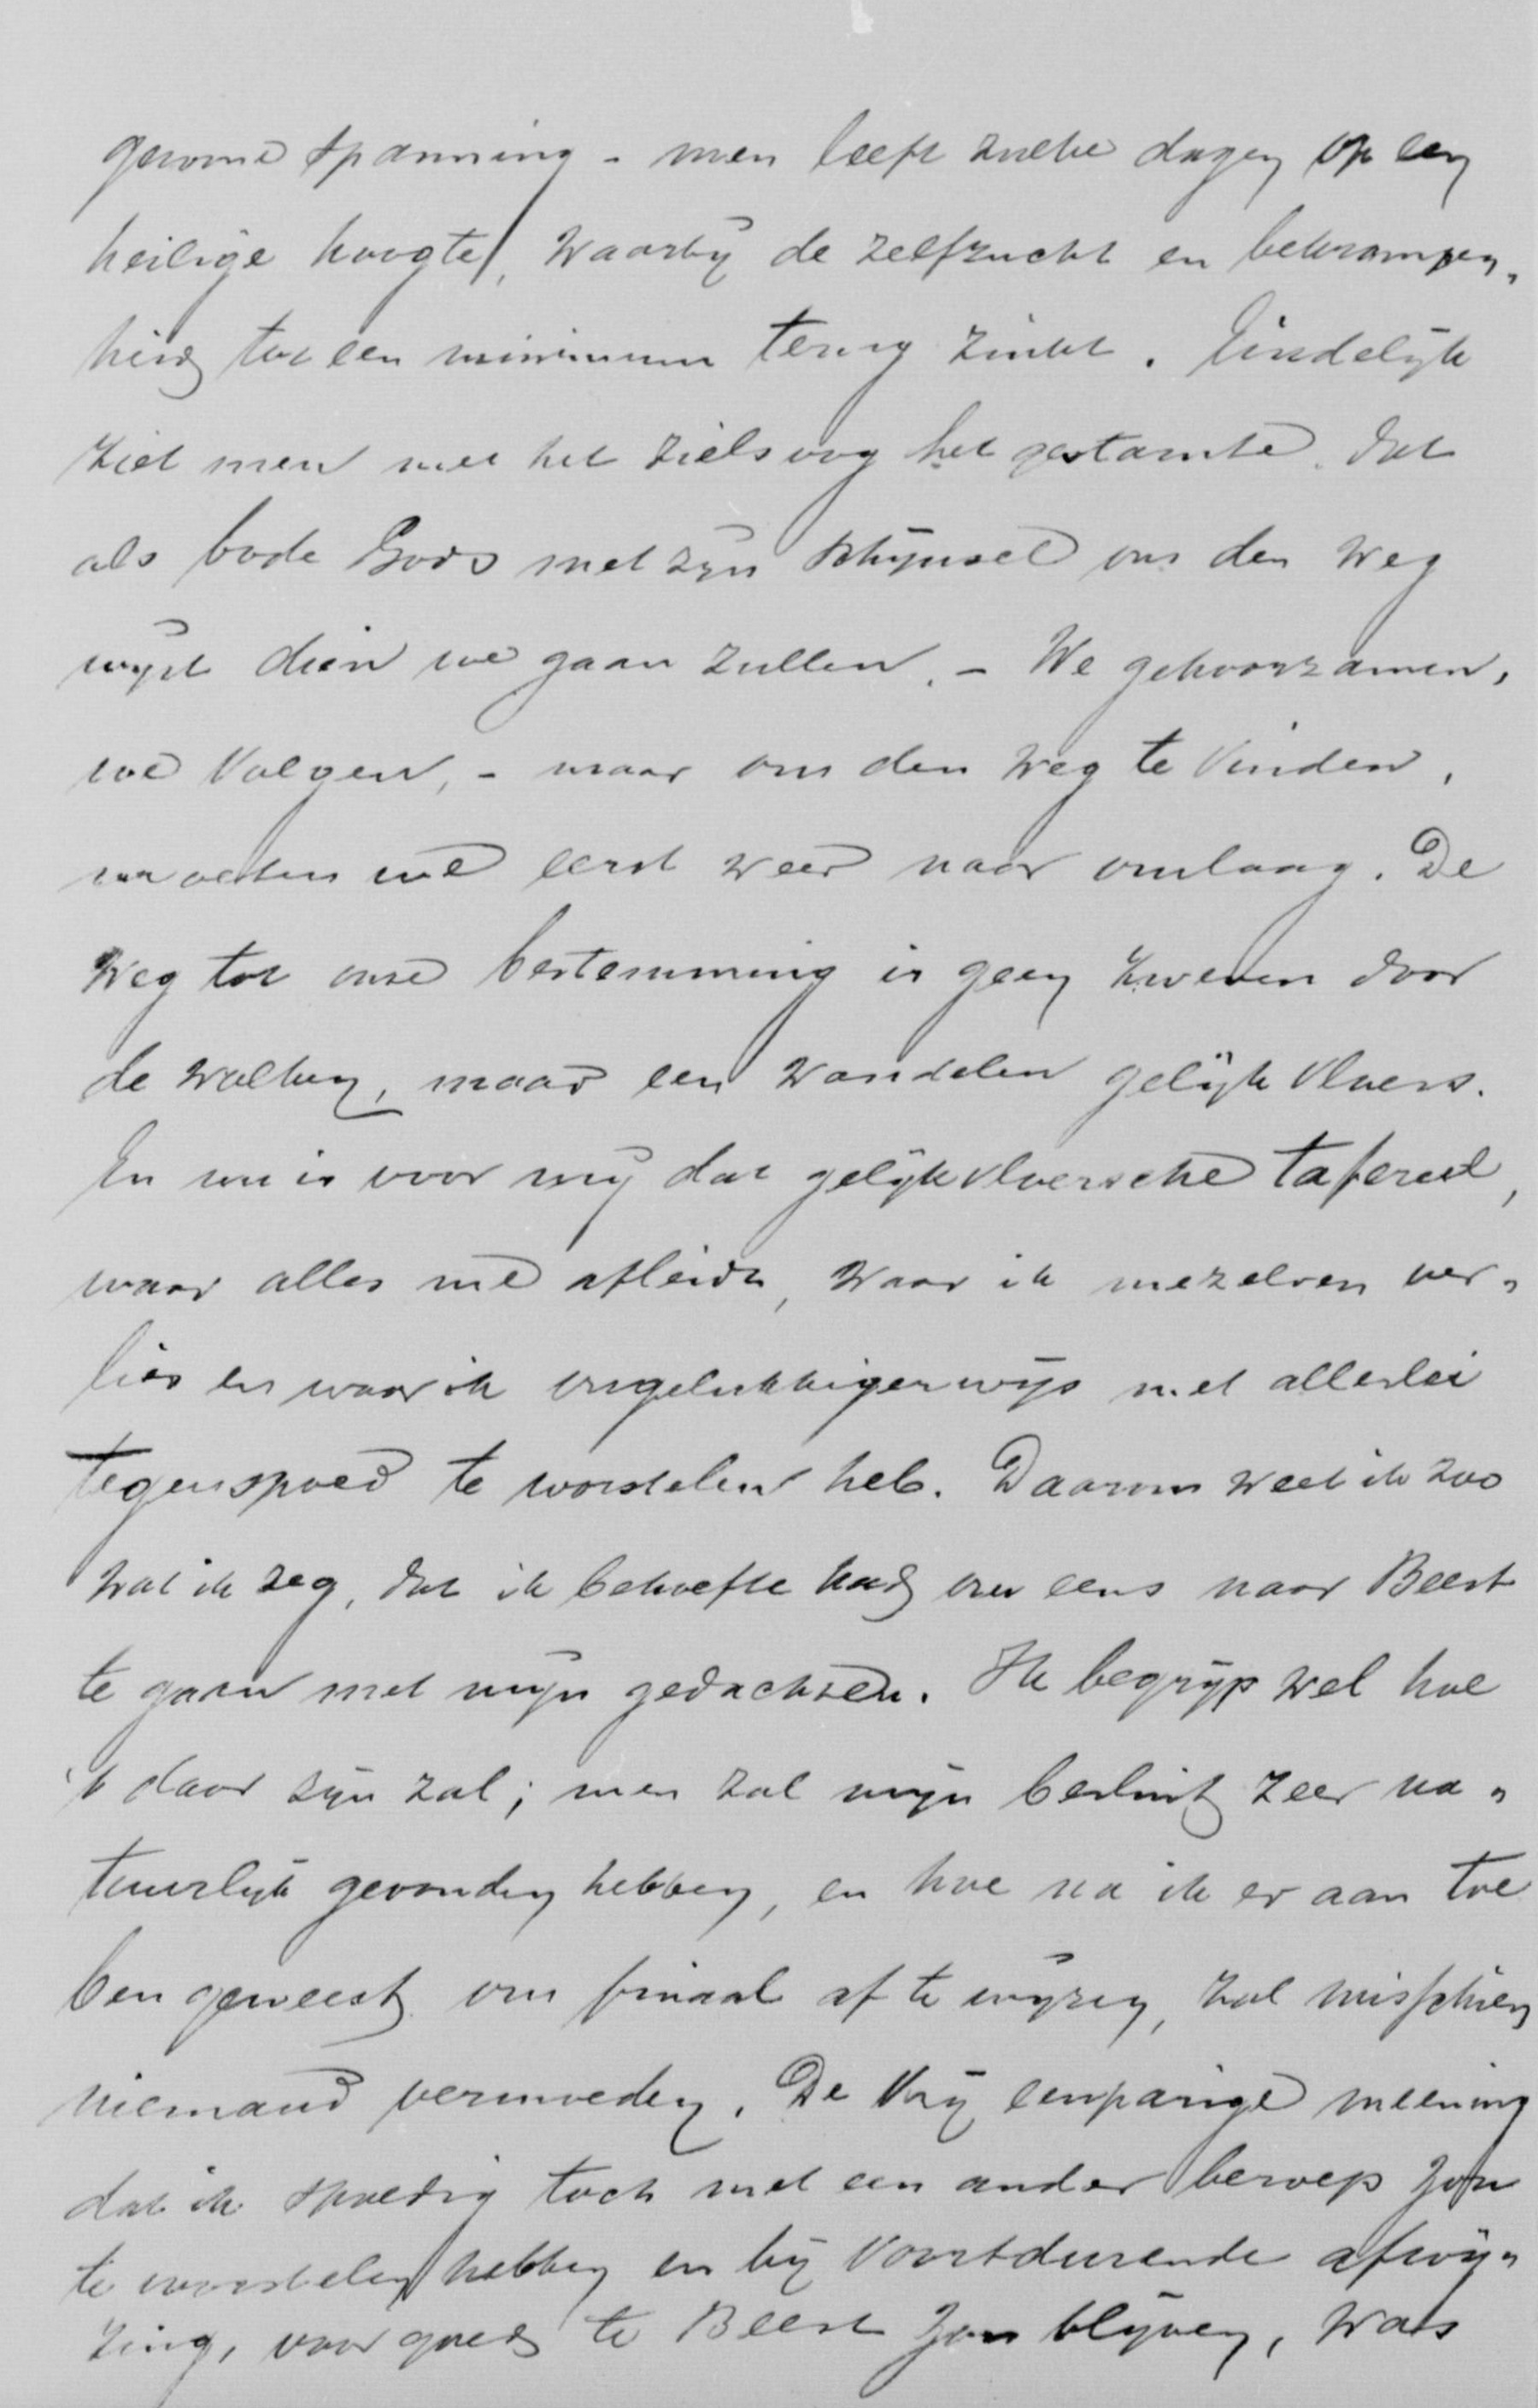 gewone spanning - men leeft zulke dagen op een
heilige hoogte, waarbij de zelfzucht en bekrompen„
heid tot een minimum terug zinkt. Eindelijk
ziet men met het zielsoog het gestarnte, dat
als bode Gods met zijn schijnsel ons den weg
wijst dien we gaan zullen. - We gehoorzamen,
we volgen, - maar om den weg te vinden,
moeten we eerst weer naar omlaag. De
weg tot onze bestemming is geen zweven door
de wolken, maar een wandelen gelijk vloers.
En nu is voor mij dat gelijkvloersche tafereel,
waar alles me afleidt, waar ik mezelven ver„
lies en waar ik ongelukkigerwijs met allerlei
tegenspoed te worstelen heb. Daarom weet ik zoo
wat ik zeg, dat ik behoefte had om eens naar Beest
te gaan met mijn gedachten. Ik begrijp wel hoe
't daar zijn zal; men zal mijn besluit zeer na„
tuurlijk gevonden hebben, en hoe na ik er aan toe
ben geweest om finaal af te wijzen, zal misschien
niemand vermoeden. De vrij eenparige meening
dat ik spoedig toch met een ander beroep zou
te worstelen hebben en bij voortdurende afwij„
zing, voor goed te Beest zou blijven, was